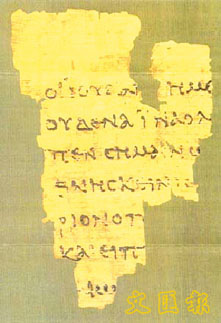 ΟΙΙΟΥΔΑΙ ΗΜΕ
ΟΥΔΕΝΑΙΝΑΟΛ
ΠΕΝϹΗΜΑΙΝΩ
ΘΝΗϹΚΕΙΝΙϹ
ΡΙΟΝΟΠ
ΚΑΙΕΙΠ
文匯報